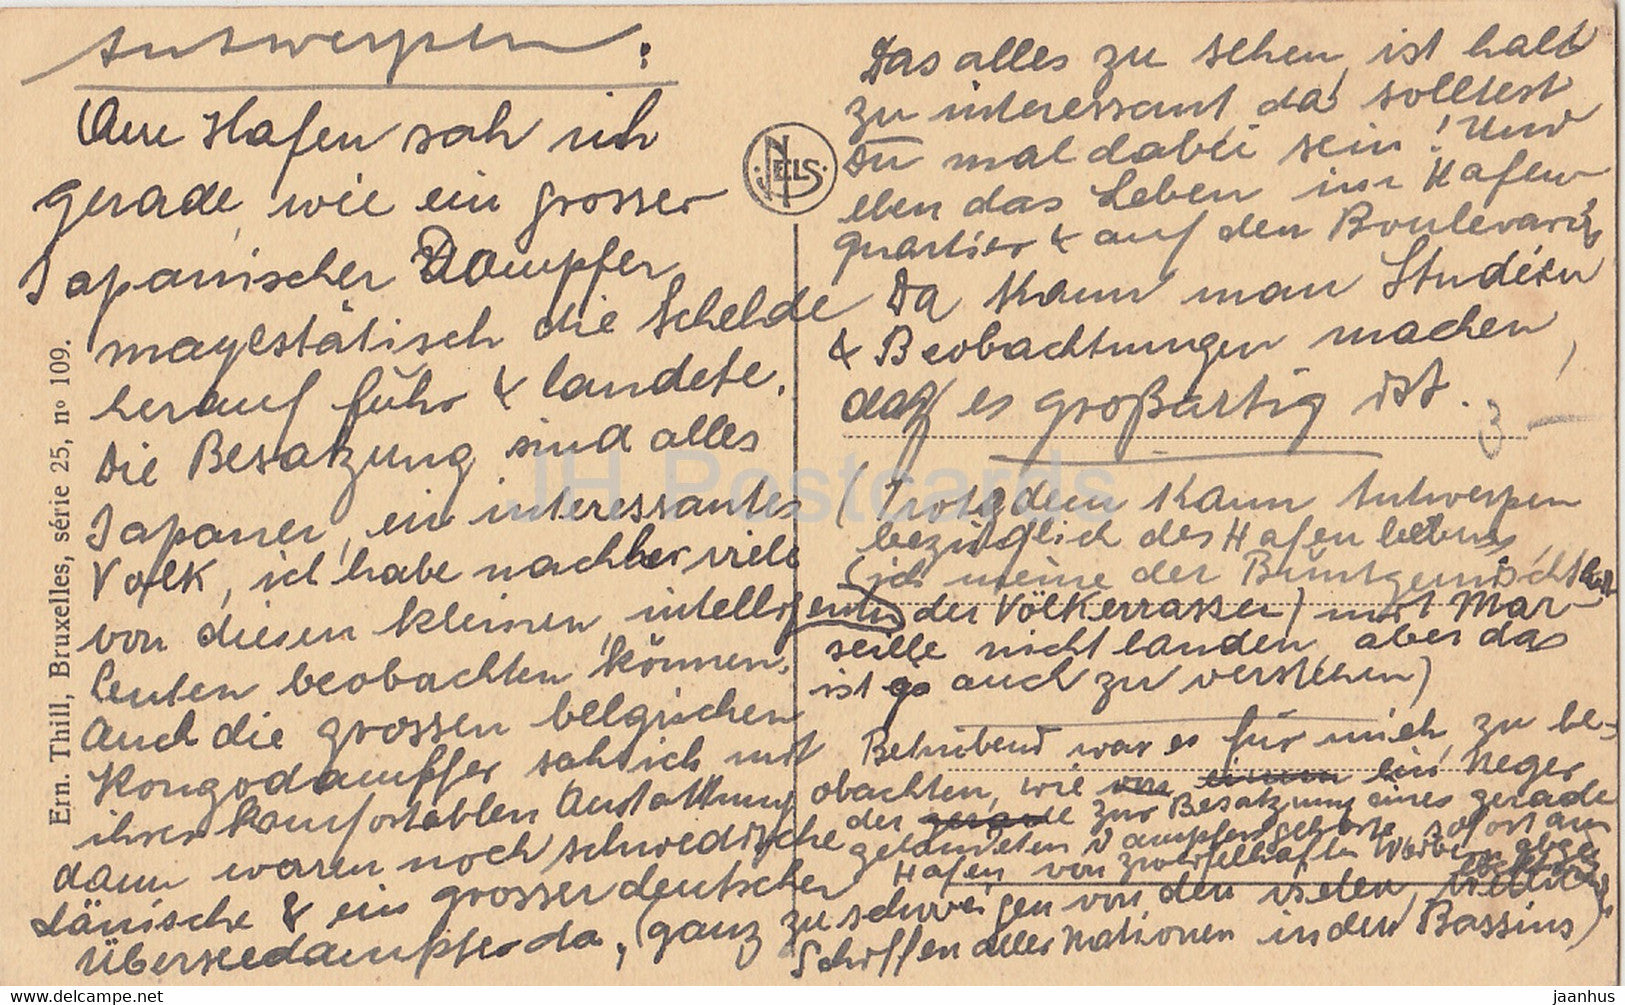 Antwerpen:
Am Hafen sah ich
gerade, wie ein grosser
Japanischer Dampfer
mayestätisch die Schelde
herauf fuhr & landete.
Die Besatzung sind alles
Japaner, ein interessantes
Volk, ich habe nachher viele
von diesen kleinen, intelligenten
Leuten beobachten können.
Auch die grossen belgischen
Kongodampffer sah ich mit
ihrer komfortablen Austattung
dann waren noch schwedische
dänische & ein grosser deutscher
Überseedampfer da, (ganz
zu schweigen von den vielen,
Schiffen aller Nationen in den Bassins)
Ern. Thill, Bruxelles, série 25, nº 109.
NELS
Das alles zu sehen, ist halt
zu interessant da solltest
Du mal dabei sein! Und
eben das Leben im Hafen,
quartier & auf den Boulevards
Da kann man Studien
& Beobachtungen machen,
daß es großartig ist.
3 —
(Trotzdem kann Antwerpen
bezüglich des Hafenlebens,
(ich meine der Buntgemischtheit
der Völkerrassen) mit Mar-
seille nicht landen, aber das
ist ja auch zu verstehen)
Betrübend war es für mich, zu be-
obachten, wie von einem ein Neger
der gerade zur Besatzung eines gerade
gelandeten Dampfers gehörte, sofort am
Hafen von zweifelhaften Weibern
JH Postcards
www.delcampe.net
jaanhus